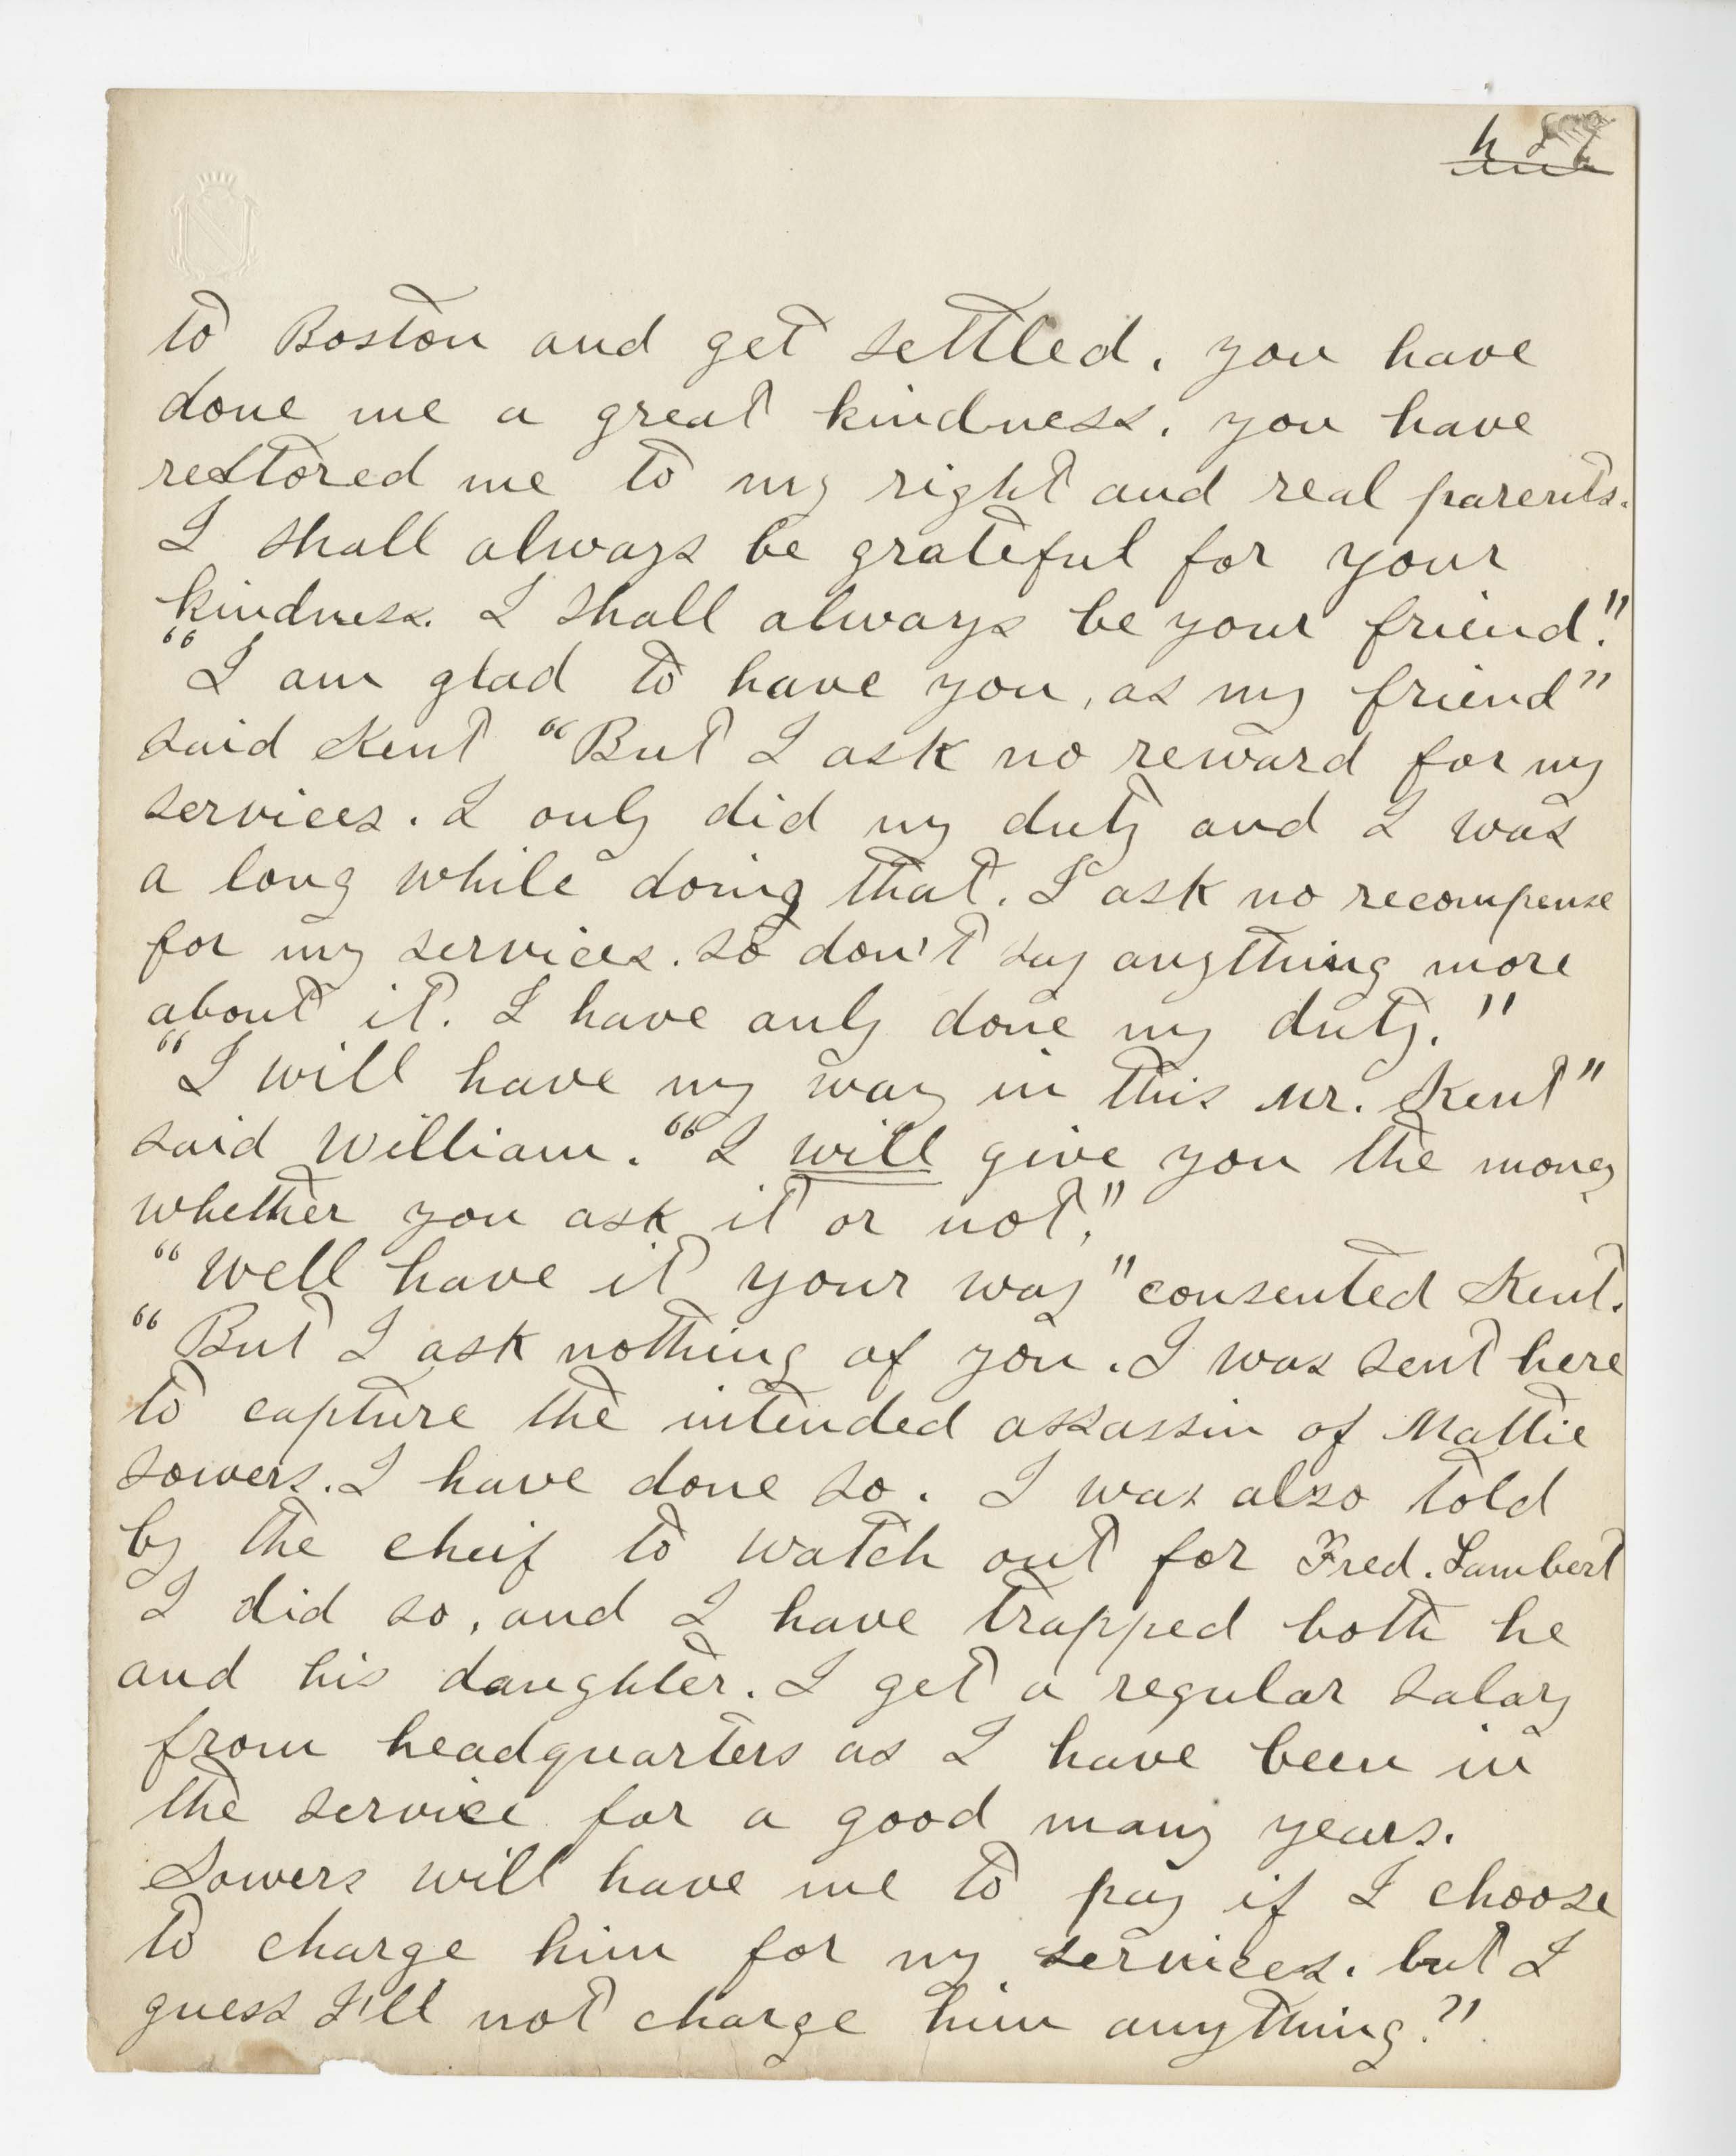 N
to Boston and get settled. you have
done me a great kindness. you have
restored me to my right and real parents.
I shall always be grateful for your
kindness. I shall always be your friend."
"I am glad to have you, as my friend"
said Kent "But I ask no reward for my
services. I only did my duty and I was
a long while doing that. I ask no recompense
for my services. so don't say anything more
about it. I have only done my duty."
"I will have my way in this Mr. Kent"
said William. "I will give you the money
whether you ask it or not."
"Well have it your way" consented Kent.
"But I ask nothing of you. I was sent here
to capture the intended assassin of Mattie
Sowers. I have done so. I was also told
by the cheif to watch out for Fred. Lambert
I did so, and I have trapped both he
and his daughter. I get a regular salary
from headquarters as I have been in
the service for a good many years.
Sowers will have me to pay if I choose
to charge him for my services. but I
guess I'll not charge him anything."